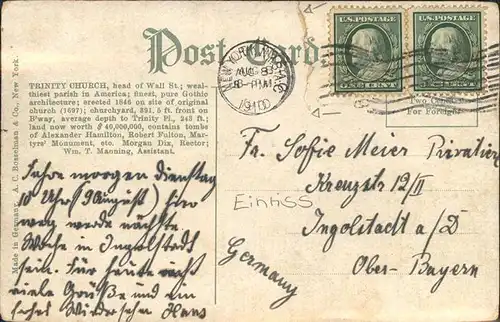 Post Card
U.S. POSTAGE
ONE CENT
U.S. POSTAGE
ONE CENT
NEW YORK
AUG 8
8-PM
1910
TRINITY CHURCH, head of Wall St.; weal-
thiest parish in America; finest, pure Gothic
architecture; erected 1846 on site of original
church (1697); churchyard, 391. 5 ft. front on
B'way, average depth to Trinity Pl., 243 ft.;
land now worth $ 40,000,000, contains tombs
of Alexander Hamilton, Robert Fulton, Mar-
tyrs' Monument, etc. Morgan Dix, Rector;
Wm. T. Manning, Assistant.
Made in Germany. A. C. Bosselman & Co., New York.
Two
For Foreign
Fahre morgen Dienstag
10 Uhr (9 August) hier
weg werde nächste
Woche in Ingolstadt
sein. Für heute recht
viele Grüße und ein
frohes Wiedersehn Hans
Fr. Sofie Meier Privatiere
Kreuzstr 12/II
Einriss
Ingolstadt a/D
Ober-Bayern
Germany